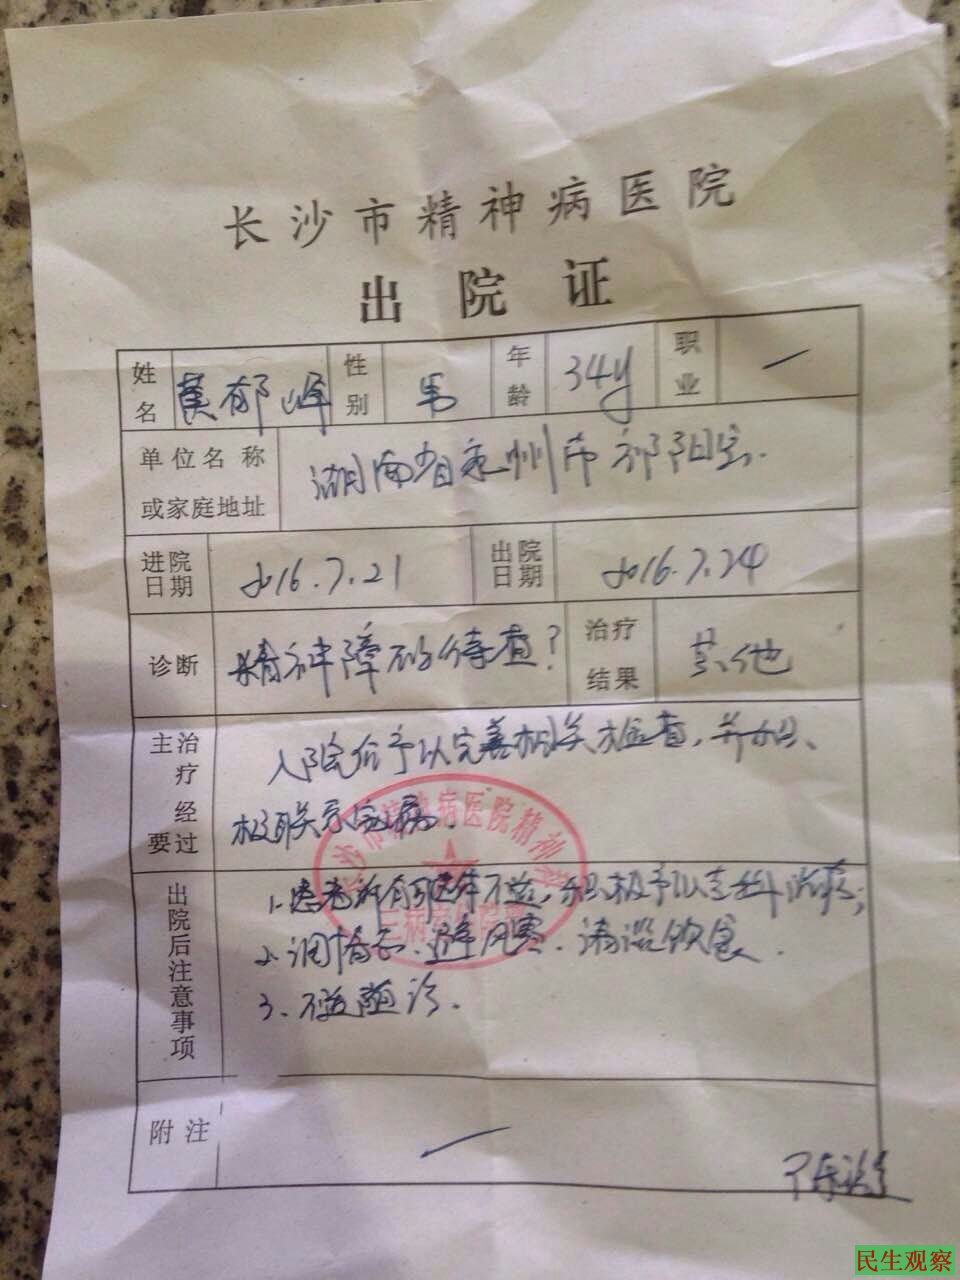 长沙市精神病医院
出院证
姓名 黄郁峰 性别 男 年龄 34y 职业 一
单位名称或家庭地址 湖南省永州市祁阳县.
进院日期 2016.7.21 出院日期 2016.7.24
诊断 精神障碍待查? 治疗结果 其他
主要治疗经过 入院给予以完善相关检查,并积
极联系家属.
出院后注意事项 1.患者所有躯体不适,积极予以专科治疗;
2.调情志、避风寒、清淡饮食.
3、不适随诊.
附注 一
长沙市精神病医院精神科
三病
民生观察